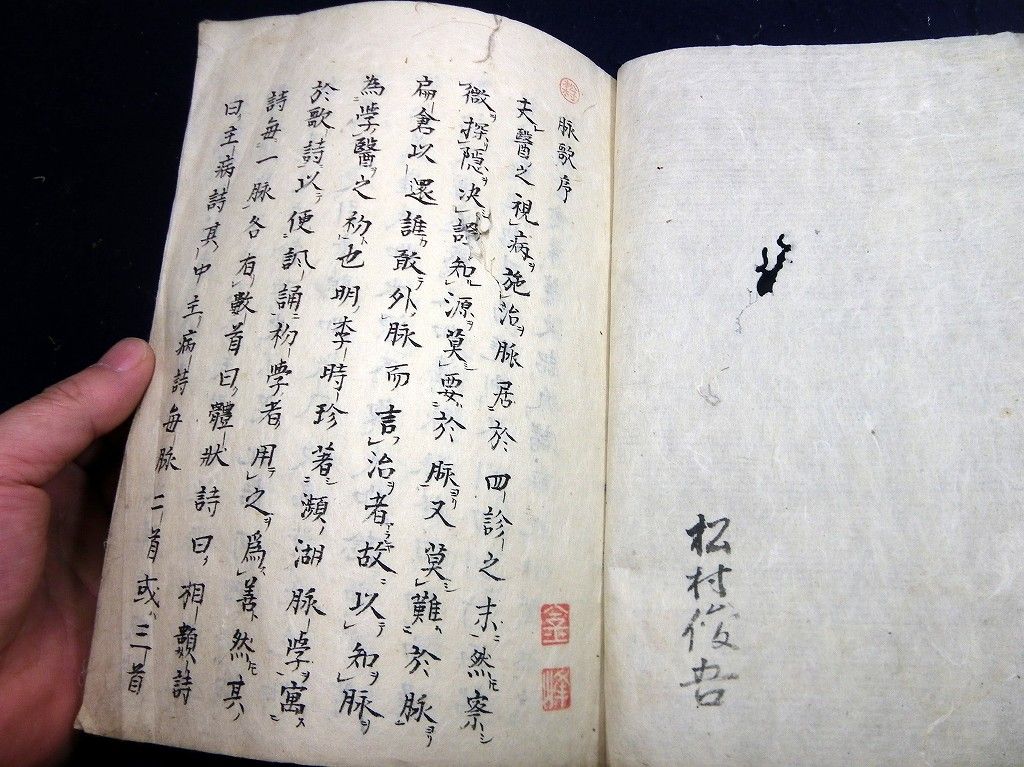 松村俊吾
脉歌序
夫醫之視病施治脉居於四診之末然察
微探隠决知源莫要於脉又莫難於脉
扁倉以還誰敢外脉而言治者故以知脉
為学醫之初也明李時珍著瀕湖脉学寓
於歌詩以便諷誦初学者用之爲善然其
詩每一脉各有數首曰體狀詩曰相類詩
曰主病詩其中主病詩每脉二首或三首